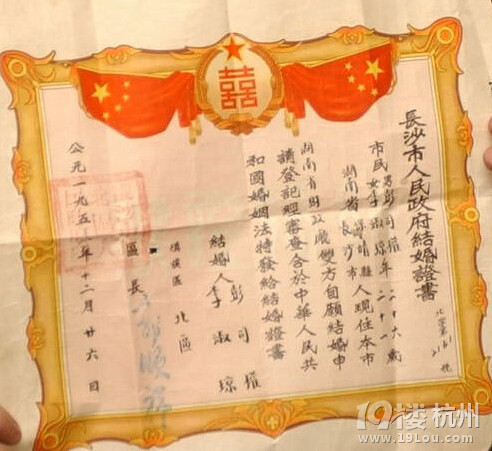 囍
長沙市人民政府結婚證書
北字第 號
市民男彭司權年二十六歲
女李淑琼年二十一
湖南省 縣人現住本市
湖南省長沙市
湖南省財政廳雙方自願結婚申
請登記經審查合於中華人民共
和國婚姻法特發給結婚證書
結婚人彭司權
李淑琼
北區
區長
公元一九五 年十二月廿六日
19楼杭州
www.19lou.com